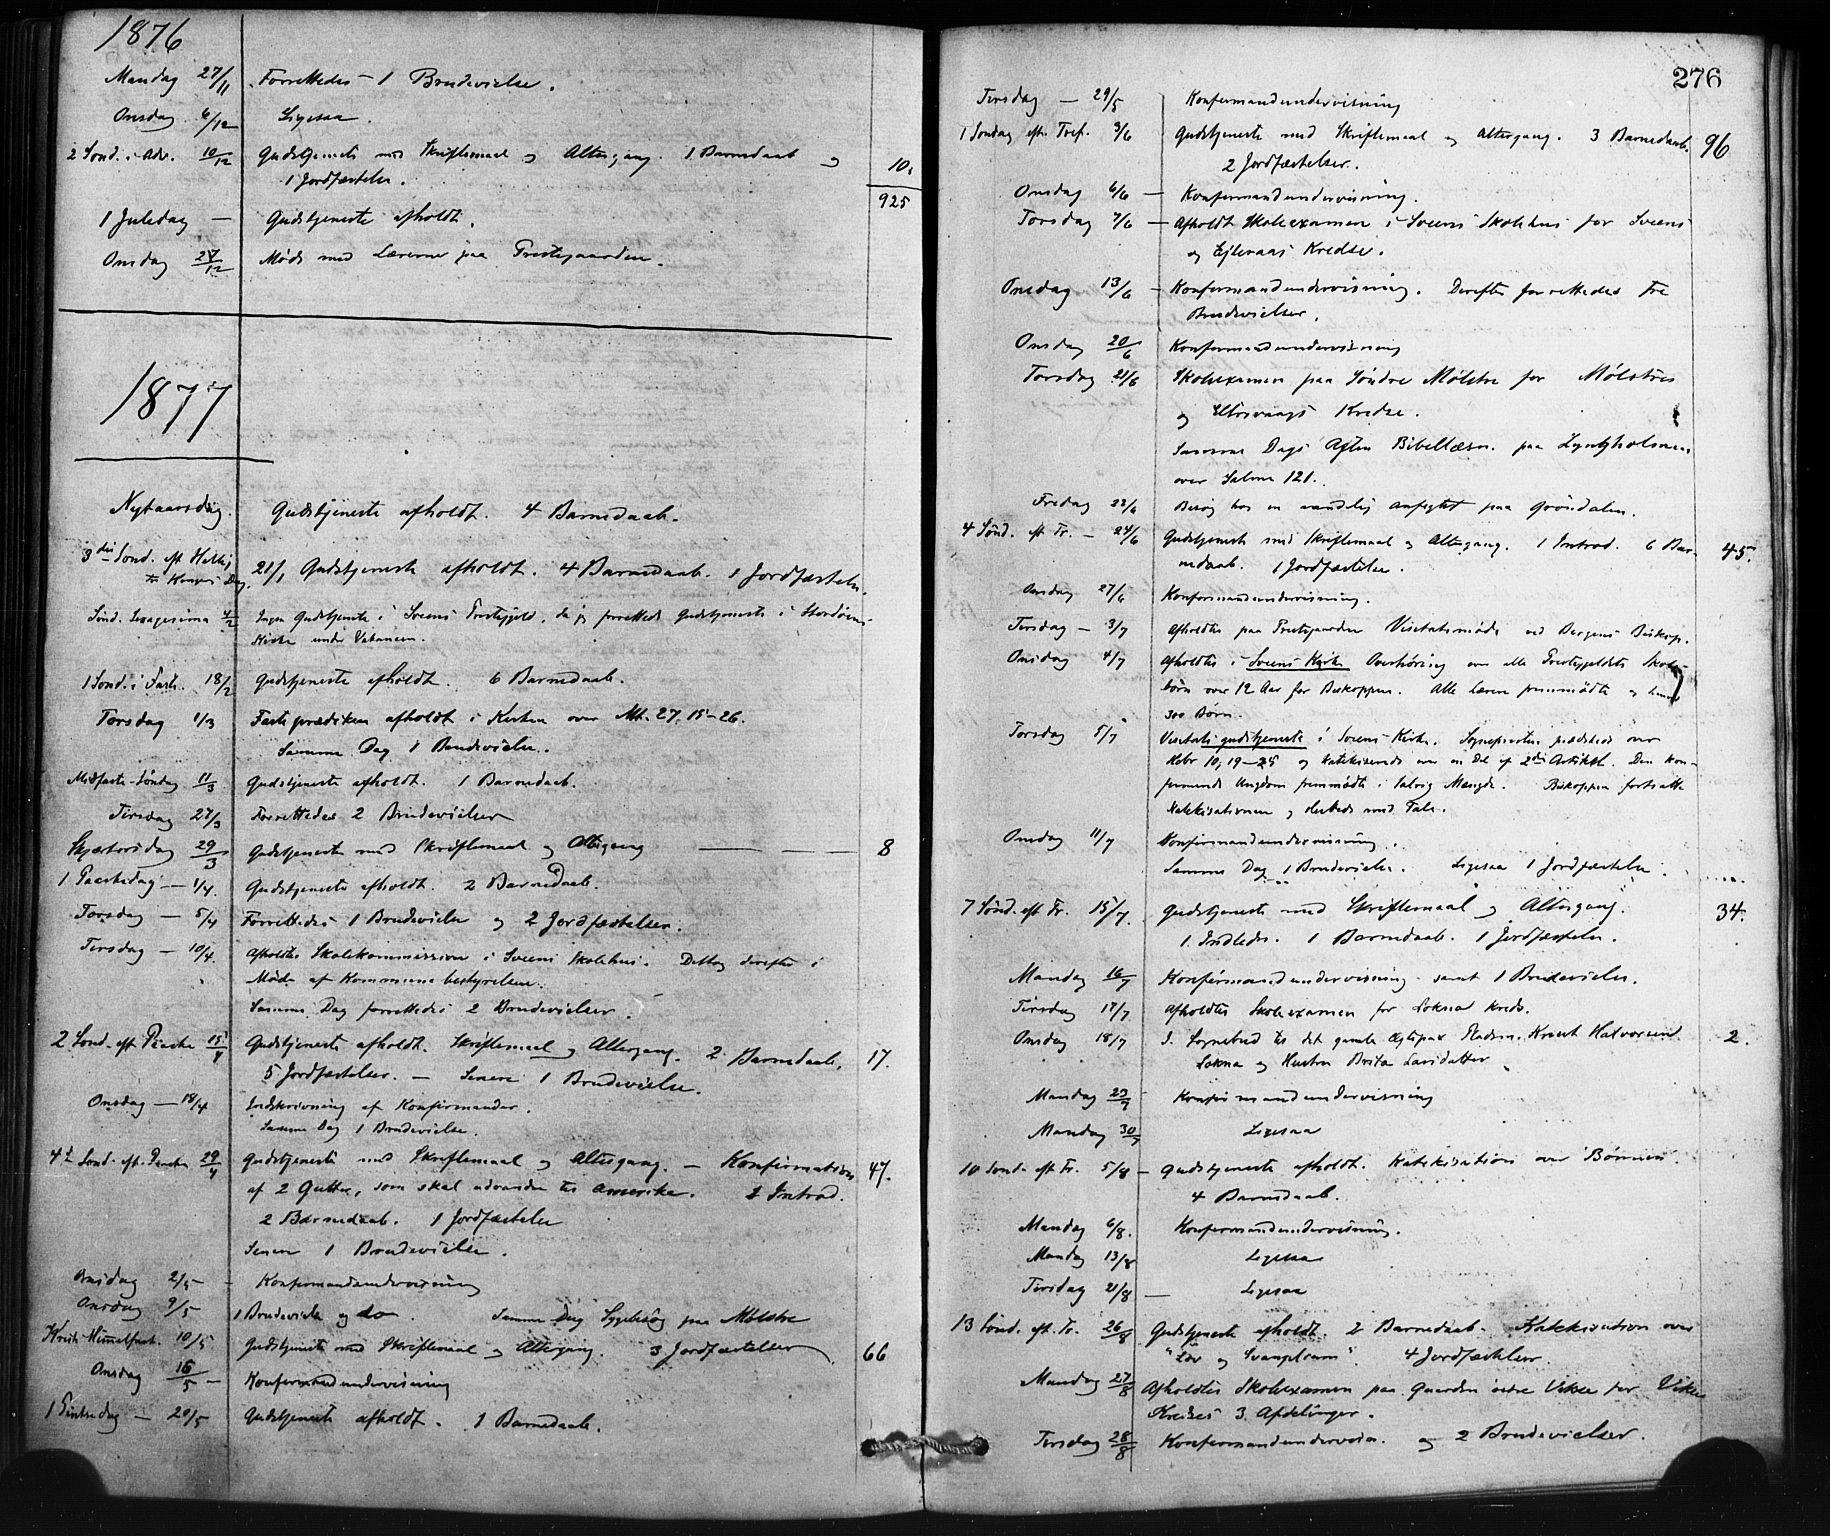 1876
Mandag 27/11 Forrettedes 1 Brudevielse.
Onsdag 6/12 Ligesaa.
2 Sönd. i Adv. 10/12 Gudstjeneste med Skriftemaal og Altergang. 1 Barnedaab og 10.
1 Jordfæstelse.
925
1 Juledag — Gudstjeneste afholdt.
Onsdag 27/12 Möde med Lærerne paa Præstegaarden.
1877
Nytaarsdag. Gudstjeneste afholdt. 4 Barnedaab.
3die Sönd. eft Hellig
tre Kongers Dag. 21/1 Gudstjeneste afholdt. 4 Barnedaab. 1 Jordfæstelse.
Sönd. Sexagesima 4/2 Ingen Gudstjeneste i Sveens Præstegjeld, da jeg forrettede Gudstjeneste i Stordöens
Kirke under Vakansen.
1 Sönd. i Faste 18/2 Gudstjeneste afholdt. 6 Barnedaab.
Torsdag 1/3 Fasteprædiken afholdt i Kirken over Mt. 27, 15-26.
Samme Dag 1 Brudevielse.
Midfaste-Söndag 11/3 Gudstjeneste afholdt. 1 Barnedaab.
Tirsdag 27/3 Forrettedes 2 Brudevielser
Skjærtorsdag 29/3 Gudstjeneste med Skriftemaal og Altergang — — — 8
1 Paaskedag — 1/4. Gudstjeneste afholdt. 2 Barnedaab.
Torsdag — 5/4 Forrettedes 1 Brudevielse og 2 Jordfæstelser.
Tirsdag — 10/4. Afholdtes Skolekommission i Sveens Skolehus. Deltog derefter i
Möde af Kommunebestyrelsen.
Samme Dag forrettedes 2 Brudevielser.
2 Sönd. eft Paaske 15/4 Gudstjeneste afholdt. Skriftemaal og Altergang. 2 Barnedaab. 17.
5 Jordfæstelser. — Senere 1 Brudevielse.
Onsdag — 18/4 Indskrivning af Konfirmander.
Samme Dag 1 Brudevielse.
4de Sönd. eft. Paaske 29/4 Gudstjeneste med Skriftemaal og Altergang. — Konfirmation 47.
af 2 Gutter, som skal udvandre til Amerika. 1 Introd.
2 Barnedaab. 1 Jordfæstelse
Senere 1 Brudevielse.
Onsdag 2/5 — Konfirmandundervisning
Onsdag 9/5 1 Brudevielse og do. Samme Dag Sygebesög paa Mölstre
Kristi Himmelfart. 10/5 Gudstjeneste med Skriftemaal og Altergang. 3 Jordfæstelser. 66
Onsdag 16/5 — Konfirmandundervisning
1 Pintsedag — 20/5 Gudstjeneste afholdt. 1 Barnedaab.
276
Tirsdag — 29/5 Konfirmandundervisning
1 Söndag eft. Tref. 3/6 Gudstjeneste med Skriftemaal og Altergang. 3 Barnedaab. 96
2 Jordfæstelser.
Onsdag 6/6 — Konfirmandundervisning.
Torsdag 7/6 — Afholdt Skoleexamen i Sveens Skolehus for Sveens
og Ejleraas Kredse.
Onsdag 13/6 — Konfirmandundervisning. Derefter forrettedes tre
Brudevielser.
Onsdag 20/6 Konfirmandundervisning
Torsdag 21/6 Skoleexamen paa Söndre Mölstre for Mölstres
og Kredse.
Samme Dags Aften Bibellæsn. paa Lyngholmen
over Salme 121.
Fredag 22/6 Besög hos en aandelig anfægtet paa Gröndalen.
4 Sönd. eft Tr. — 24/6 Gudstjeneste med Skriftemaal og Altergang. 1 Introd. 6 Bar- 45.
nedaab. 1 Jordfæstelse.
Onsdag 27/6 Konfirmandundervisning.
Tirsdag — 3/7 Afholdtes paa Præstegaarden Visitatsmöde ved Bergens Biskop.
Onsdag 4/7 Afholdtes i Sveens Kirke Overhöring over alle Præstegjeldets Skole-
börn over 12 Aar for Biskoppen. Alle Lærere fremmödte og
300 Börn.
Torsdag 5/7 Visitatsgudstjeneste i Sveens Kirke. Sognepræsten prædikede over
Hebr 10, 19-25 og katekiserede over en Del af 2den Artikel. Den kon-
firmerede Ungdom fremmödte i talrig Mængde. Biskoppen fortsatte
Katekisationen og sluttede med Tale.
Onsdag 11/7 Konfirmandundervisning.
Samme Dag 1 Brudevielse. Ligesaa 1 Jordfæstelse.
7 Sönd. eft Tr. 15/7. Gudstjeneste med Skriftemaal og Altergang. 34.
1 Indledn. 1 Barnedaab. 1 Jordfæstelse.
Mandag 16/7 Konfirmandundervisning samt 1 Brudevielse.
Tirsdag 17/7 Afholdtes Skoleexamen for Lokna Kreds.
Onsdag 18/7 I Sognebud til det gamle Ægtepar Knut Halvorsen 2.
Lokna og Hustru Brita Larsdatter.
Mandag 23/7 Konfirmandundervisning
Mandag 30/7 Ligesaa
10 Sönd. eft Tr. 5/8 — Gudstjeneste afholdt. Katekisation over Bönnen.
4 Barnedaab.
Mandag 6/8. Konfirmandundervisning.
Mandag 13/8 Ligesaa
Tirsdag 21/8 — Ligesaa
13 Sönd. eft. Tr. 26/8 Gudstjeneste afholdt. 2 Barnedaab. Katekisation over
"Lov og Evangelium". 4 Jordfæstelser.
Mandag 27/8 Afholdtes Skoleexamen paa Gaarden indre Vikse for Vikse
Kredses 3 Afdelinger.
Tirsdag 28/8 Konfirmandundervisn. og 2 Brudevielser.